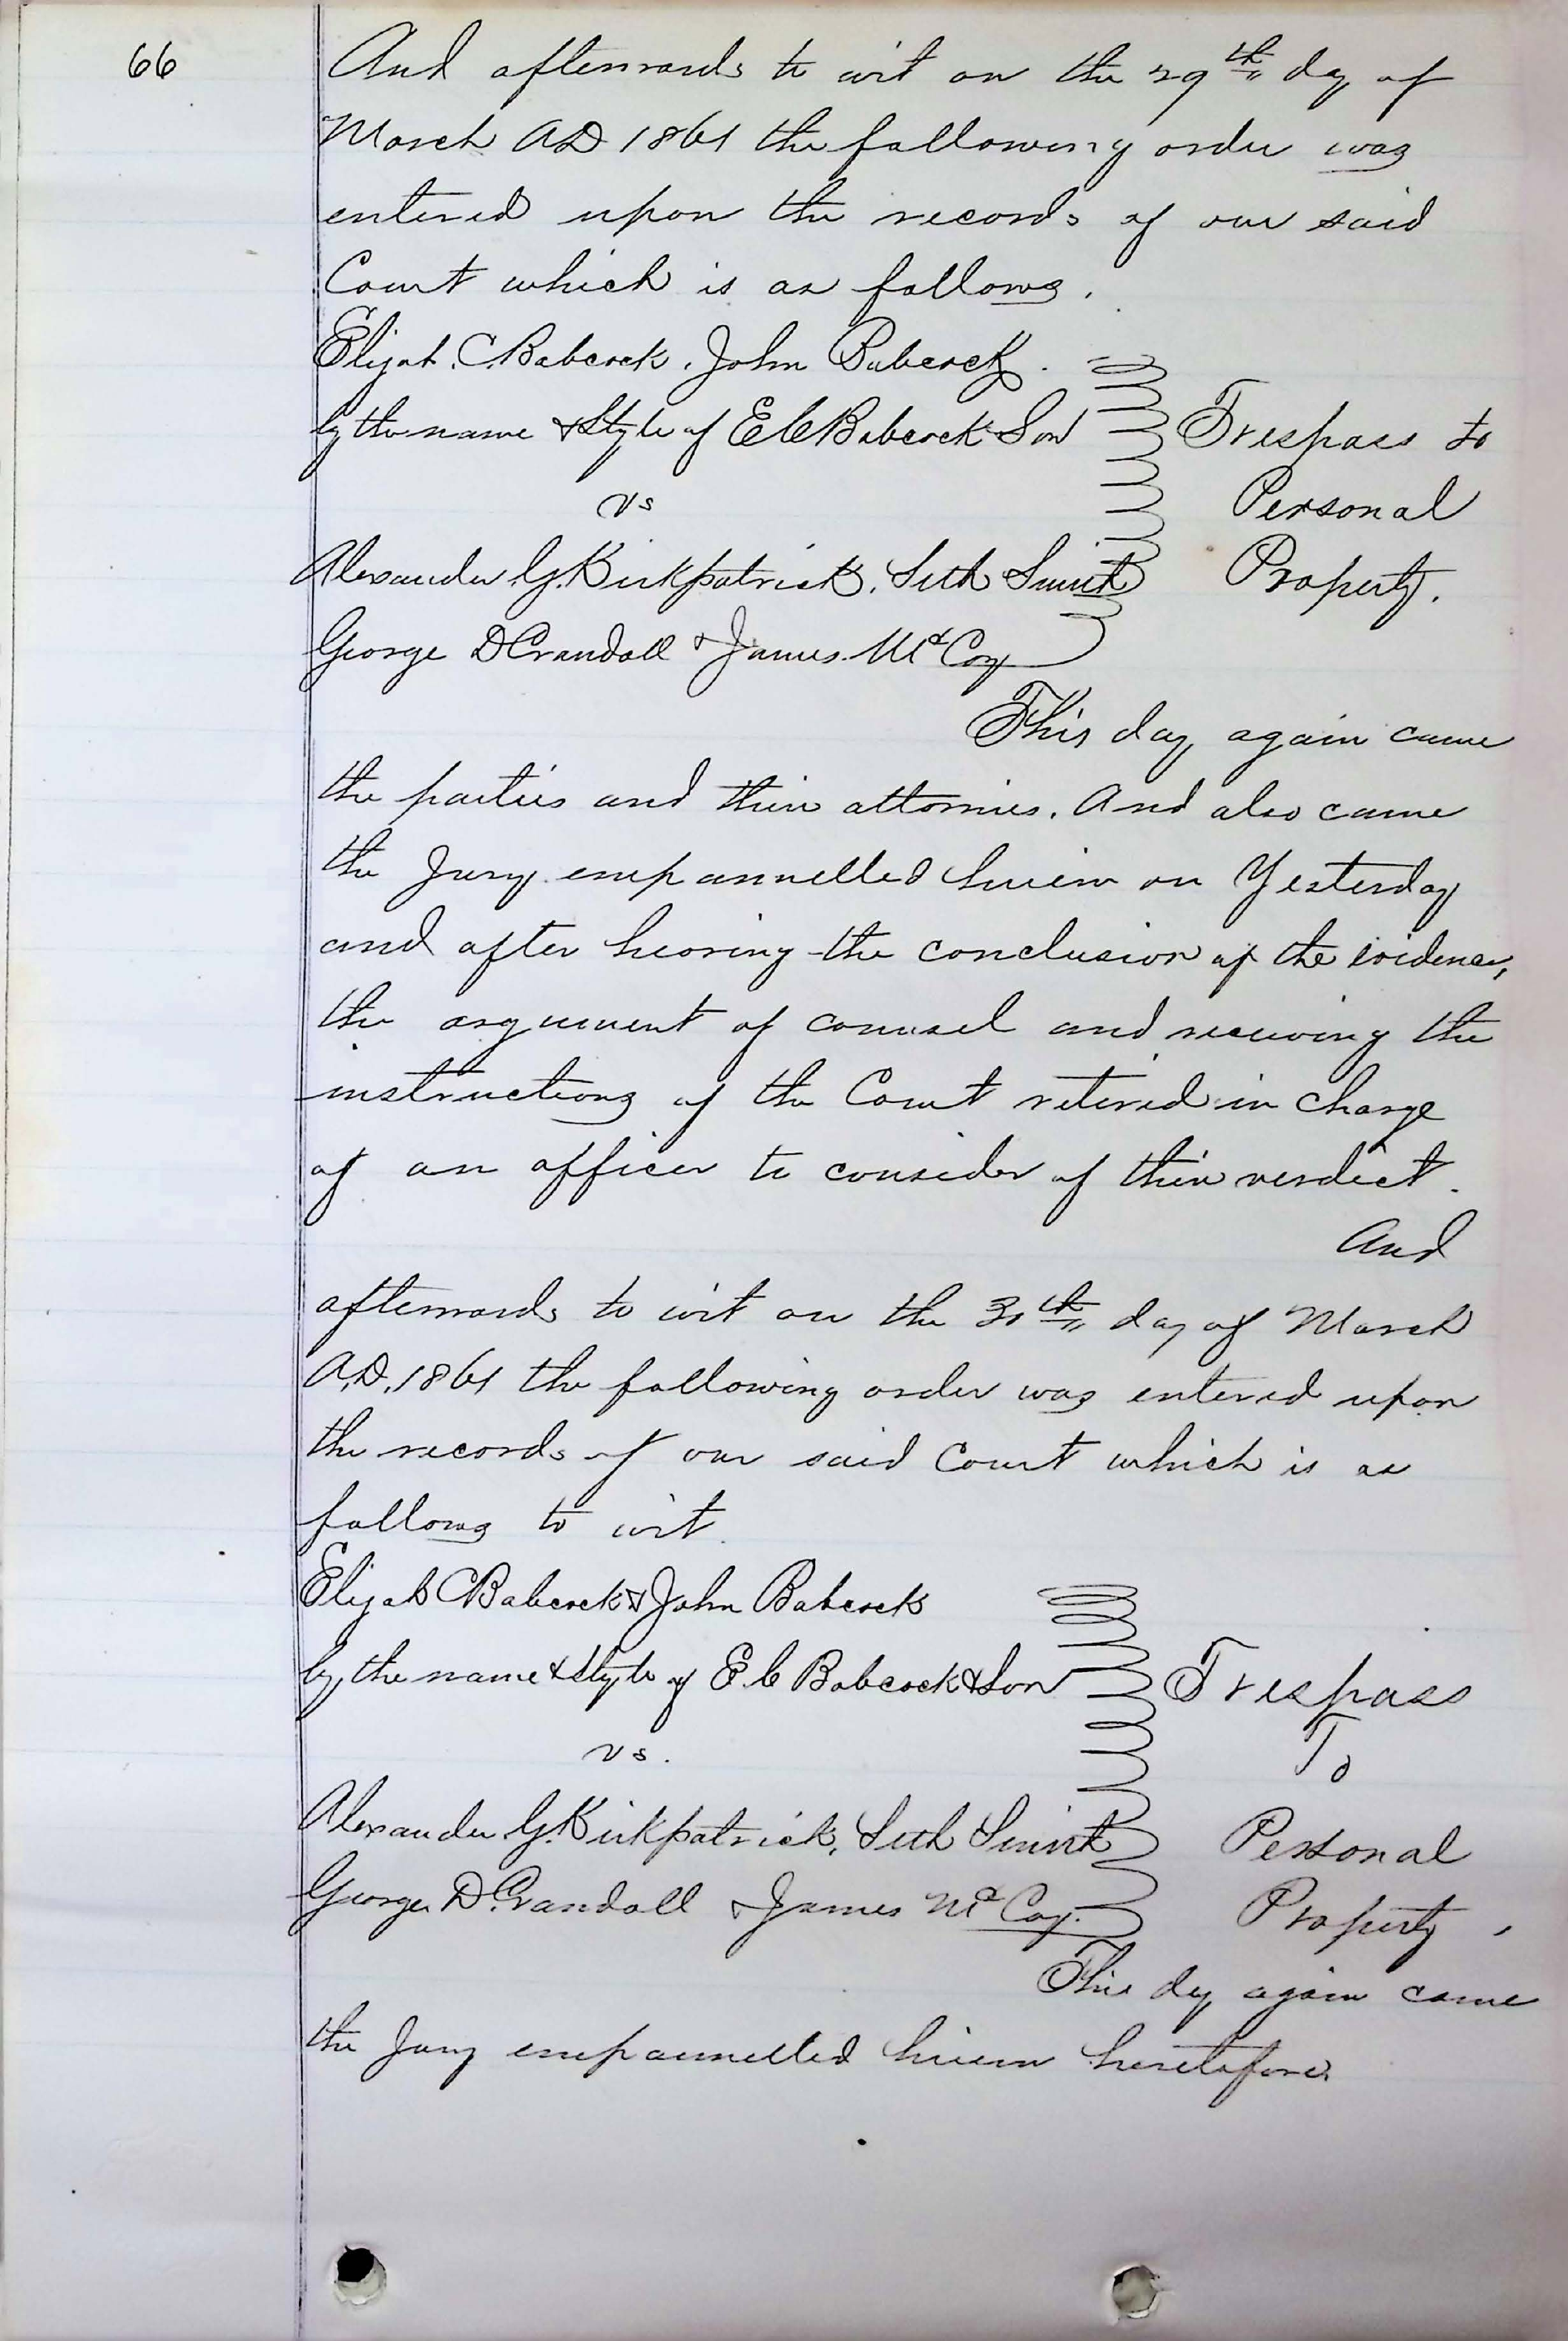 66
And afterwards to wit on the 29th day of
March AD 1861 the following order was
entered upon the records of our said
Court which is as follows.
Elijah. C. Babcock. John Babcock.
by the name & Style of E C Babcock & Son
Trespass to
vs
Personal
Alexander G. Kirkpatrick, Seth Smith
Property.
George D Crandall & James McCoy
This day again came
the parties and their attornies. And also came
the Jury empannelled herein on Yesterday
and after hearing the conclusion of the evidence,
the argument of counsel and receiving the
instructions of the Court retired in charge
of an officer to consider of their verdict.
And
afterwards to wit on the 30th day of March
A.D. 1861 the following order was entered upon
the records of our said Court which is as
follows to wit.
Elijah C Babcock & John Babcock
by the name & Style of E. C Babcock & Son
Trespass
vs.
To
Alexander G. Kirkpatrick, Seth Smith
Personal
George D. Crandall & James McCoy.
Property,
This day again came
the Jury empannelled herein heretofore